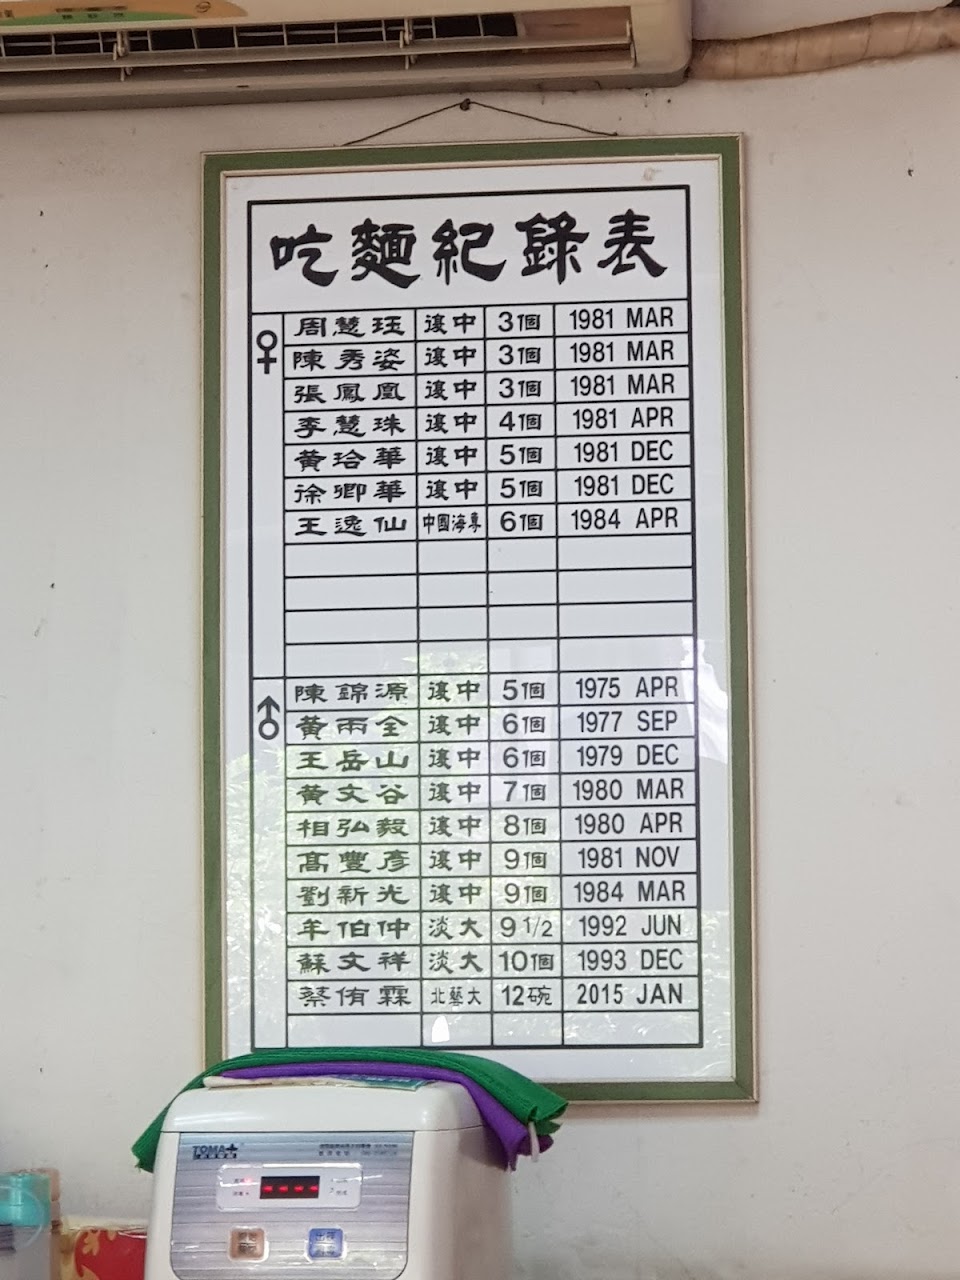 吃麵紀錄表
♀
周慧珏 復中 3個 1981 MAR
陳秀姿 復中 3個 1981 MAR
張鳳凰 復中 3個 1981 MAR
李慧珠 復中 4個 1981 APR
黃珨華 復中 5個 1981 DEC
徐卿華 復中 5個 1981 DEC
王逸仙 中國海專 6個 1984 APR
♂
陳錦源 復中 5個 1975 APR
黃雨全 復中 6個 1977 SEP
王岳山 復中 6個 1979 DEC
黃文谷 復中 7個 1980 MAR
相弘毅 復中 8個 1980 APR
高豐彥 復中 9個 1981 NOV
劉新光 復中 9個 1984 MAR
牟伯仲 淡大 9 1/2 1992 JUN
蘇文祥 淡大 10個 1993 DEC
蔡侑霖 北藝大 12碗 2015 JAN
TOMA+